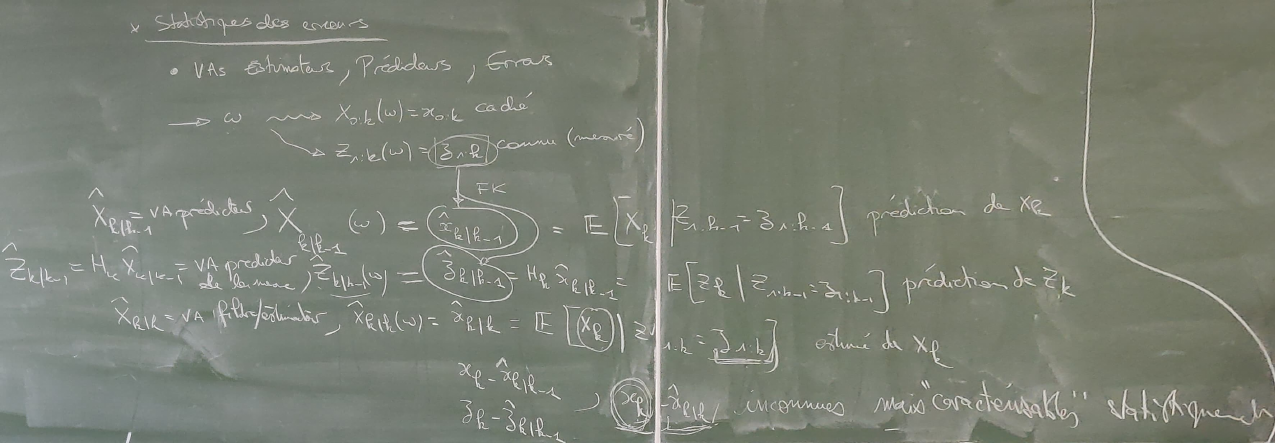 × Statistiques des erreurs
• VAs Estimateurs, Prédicteurs, Erreurs
→ ω ⇝ X_{0:k}(ω) = x_{0:k} caché
↘ Z_{1:k}(ω) = z_{1:k} connu (mesuré)
↓ FK
X̂_{k|k-1} = VA prédicteur, X̂_{k|k-1}(ω) = x̂_{k|k-1} = E[X_k | Z_{1:k-1} = z_{1:k-1}] prédiction de x_k
Ẑ_{k|k-1} = H_k X̂_{k|k-1} = VA prédicteur de la mesure, Ẑ_{k|k-1}(ω) = ẑ_{k|k-1} = H_k x̂_{k|k-1} = E[Z_k | Z_{1:k-1} = z_{1:k-1}] prédiction de z_k
X̂_{k|k} = VA filtre/estimateur, X̂_{k|k}(ω) = x̂_{k|k} = E[X_k | Z_{1:k} = z_{1:k}] estimé de x_k
x_k - x̂_{k|k-1}
z_k - ẑ_{k|k-1}, x_k - x̂_{k|k} inconnues mais "caractérisables" statistiquement